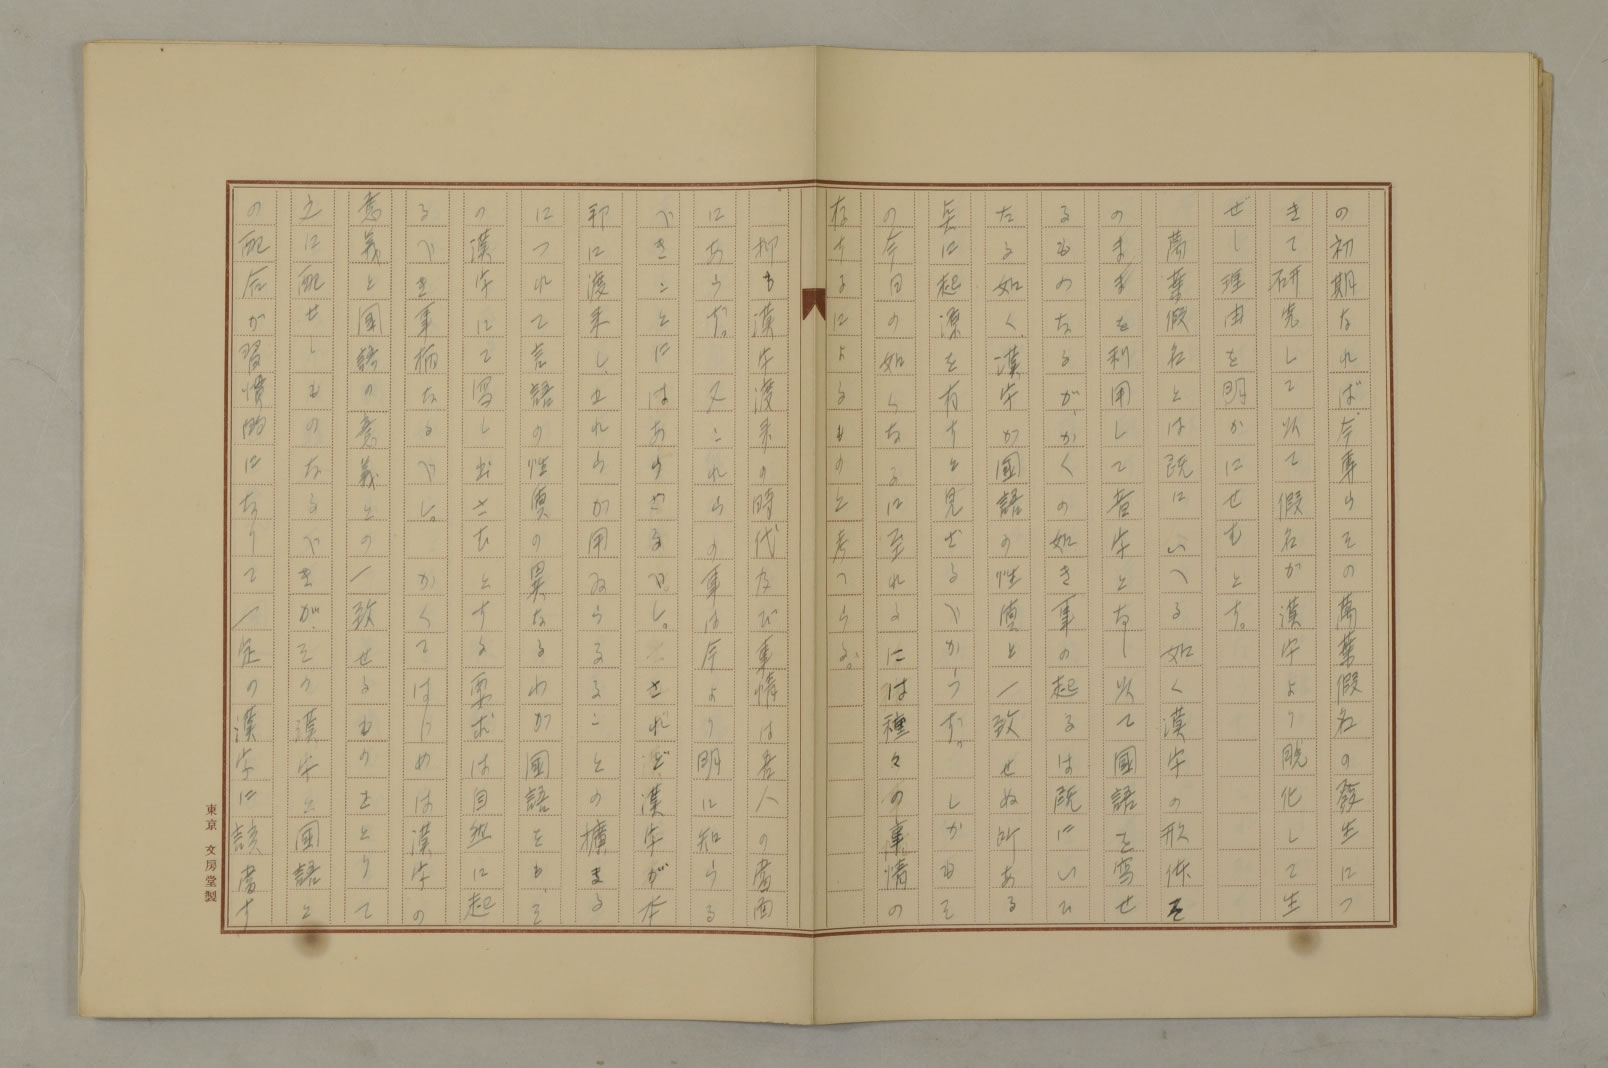 の初期なれば、今専らその萬葉假名の發生につ
きて研究して以て假名が漢字より脱化して生
ぜし理由を明かにせむとす。
萬葉假名とは既にいへる如く漢字の形体を
のまゝを利用して音字となし以て國語を寫せ
るものなるが、かくの如き事の起るは既にいひ
たる如く、漢字が國語の性質と一致せぬ所ある
點に起源を有すと見ざるべからず。しかもそ
の今日の如くなるに至れるには種々の事情の
存するによるものと考へらる。
抑も漢字渡来の時代及び事情は吾人の當面
にあらず。又これらの事は今より明に知らる
べきことにはあらざるべし。されど、漢字が本
邦に渡来し、それらが用ゐらるることの擴まる
につれて言語の性質の異なるわが國語をも、そ
の漢字にて寫し出さむとする要求は自然に起
るべき事柄なるべし。かくてはじめは漢字の
意義と國語の意義との一致せるものをとりて
之に配せしものなるべきがその漢字と國語と
の配合が習慣的になりて一定の漢字に該當す
東京 文房堂製